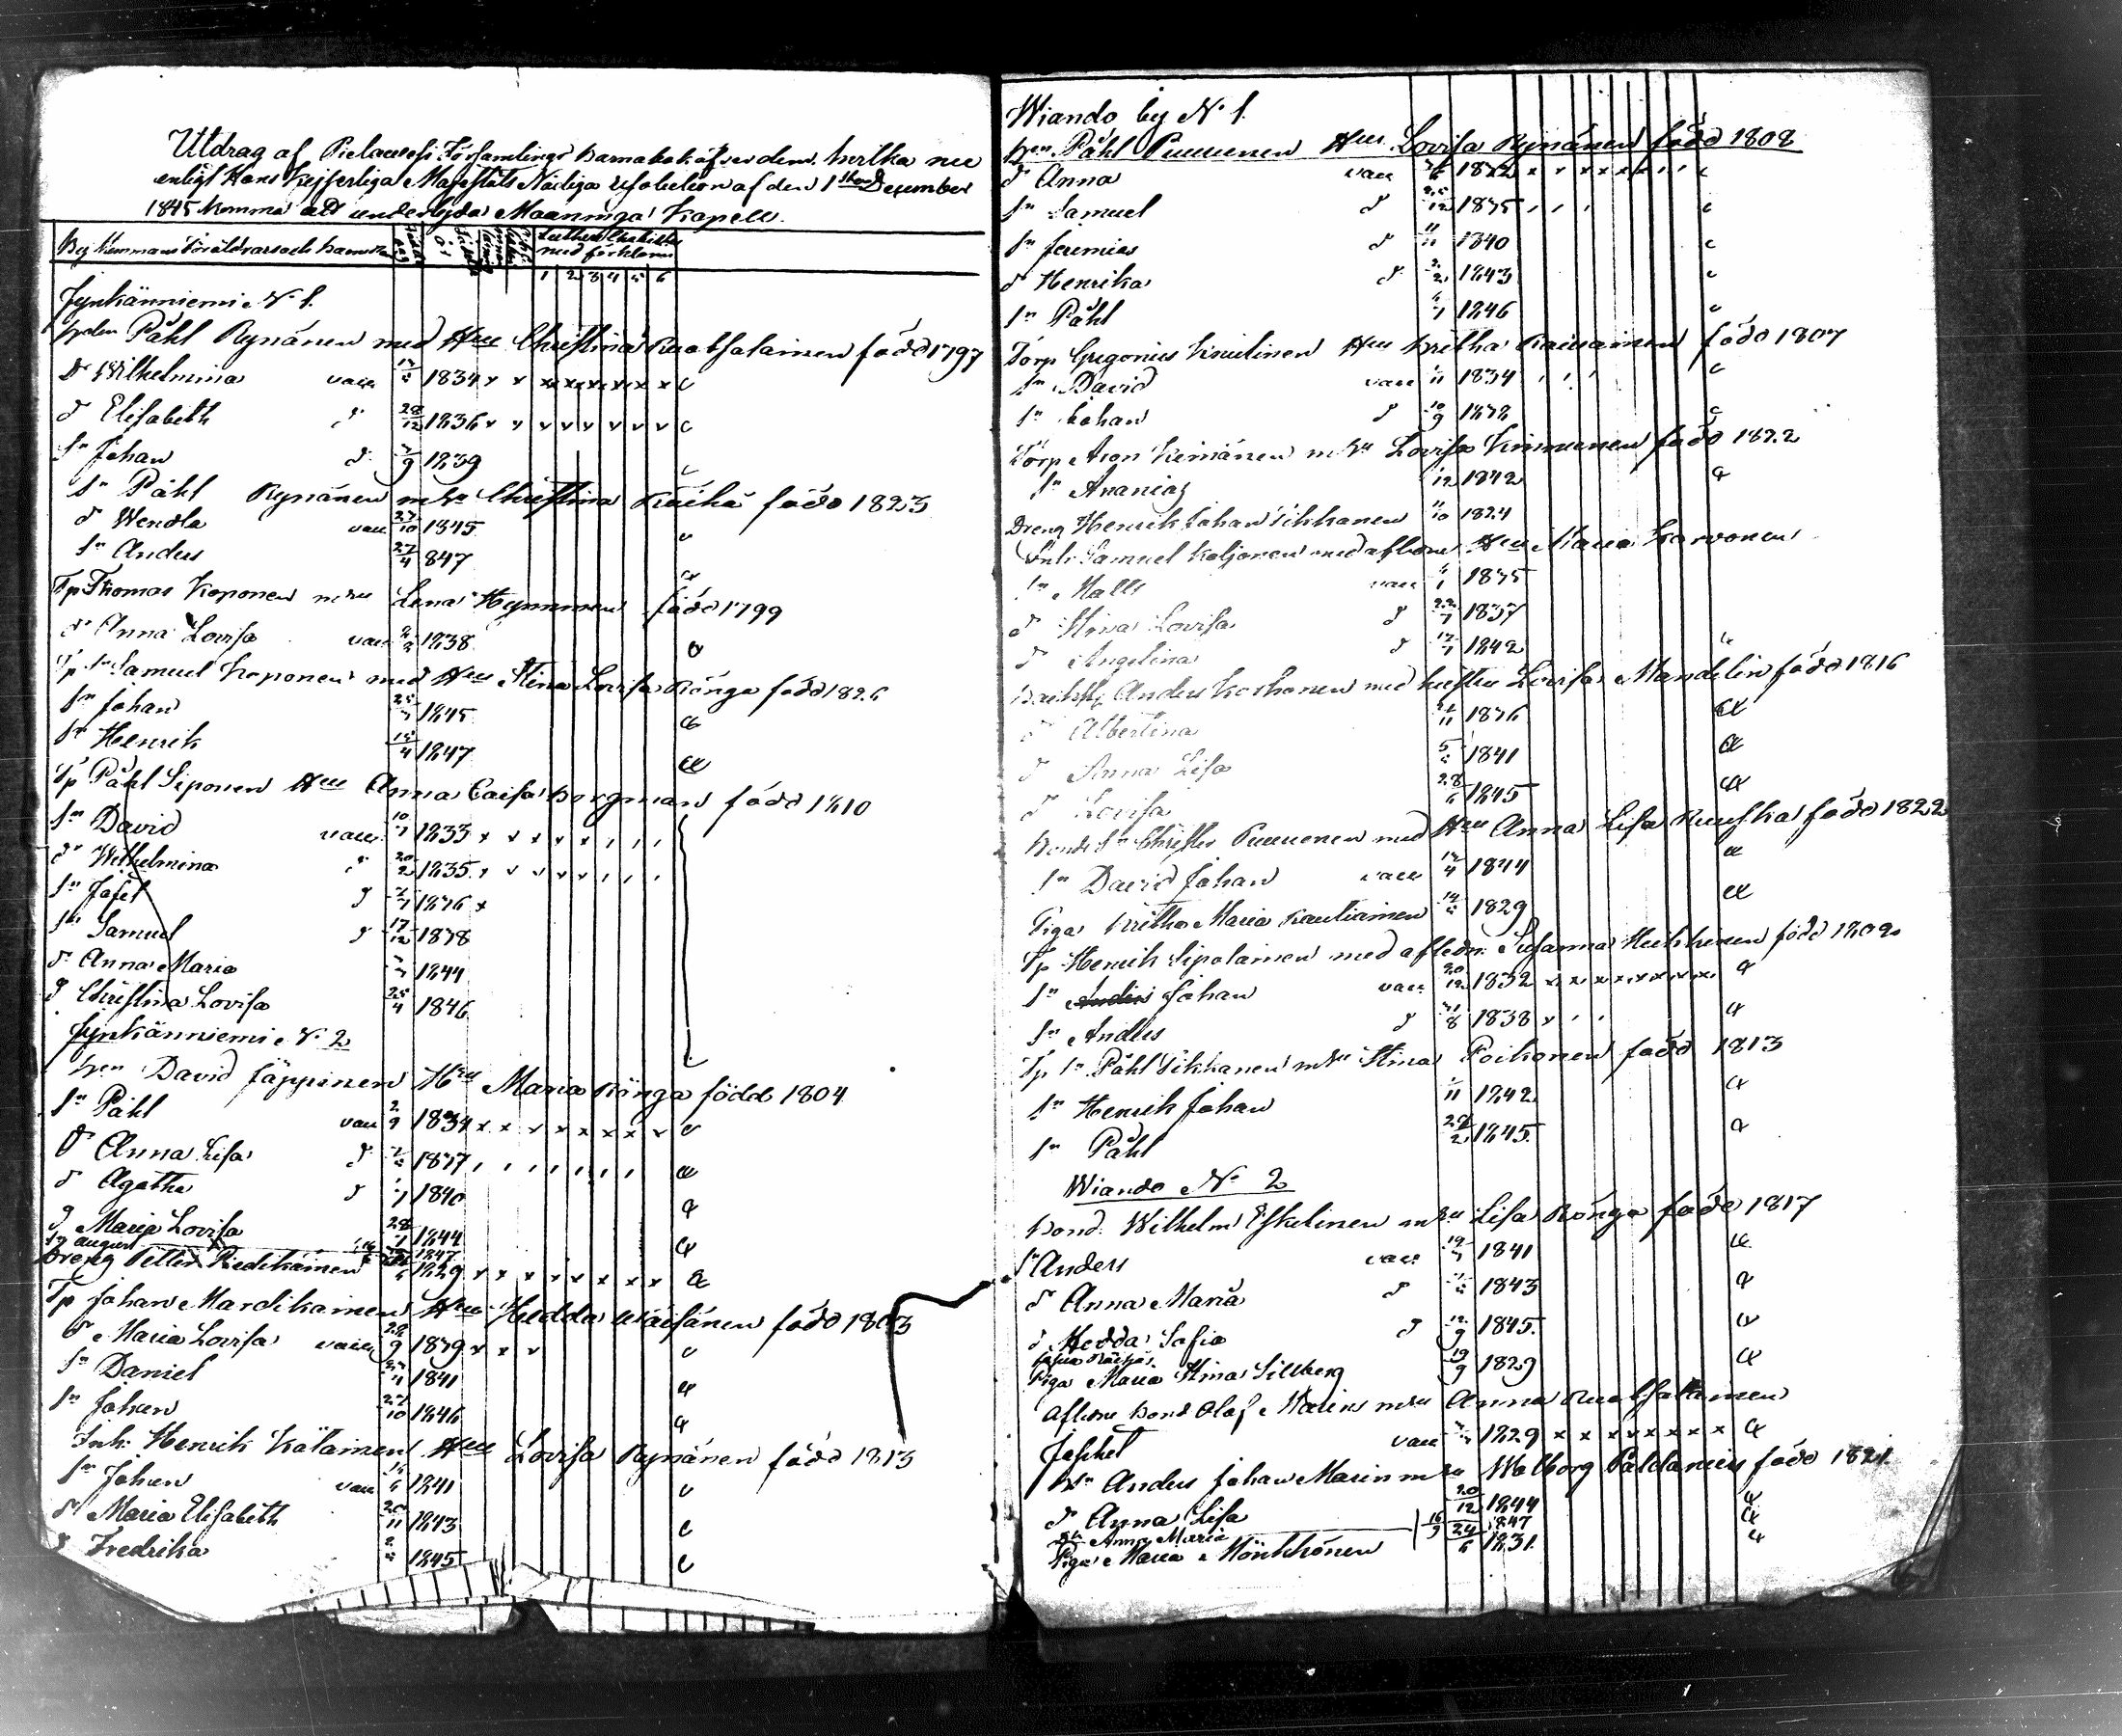 Utdrag af Pielavesi Församlings Barnabok öfver dem, hvilka nu
enligt Hans Kejserliga Majestäts Nådiga resolution af den 1sta December
1845 komma att underlyda Maaninga Kapell.
By Hemmans Föräldrars och Barnens
Luthers Cathechis
med förklaring
1 2 3 4 5 6
Jynkänniemi N. 1.
Påhl Rynänen med Hru Christina Ruotsalainen född 1797
Dr Wilhelmina van 1834
dr Elisabeth d 28/12 1836
Sn Johan d 9 1839
Sn Påhl Rynänen m hu Christina Räihä född 1823
d Wendla van 27/10 1845
Sn Anders 27/4 847
Tp Thomas Koponen m hu Lena Hynninen född 1799
dr Anna Lovisa van 1838
Tp Sn Samuel Koponen med Hru Stina Lovisa Rönga född 1826
Sn Johan 25 1845
Sn Henrik 15/4 1847
Tp Påhl Siponen Hru Anna Caisa Borgman född 1810
Sn David van 10 1833
dr Wilhelmina d 20/2 1835
Sn Josef d 1836
Sn Samuel d 17/12 1838
dr Anna Maria 1844
d Christina Lovisa 25/4 1846
Jynkänniemi N. 2
David Jäppinen Hru Maria Rönga född 1804
Sn Påhl van 2/9 1834
dr Anna Lisa d 1837
d Agatha d 1840
d Maria Lovisa 28/1 1844
Sn August 1847
Dreng Petter Riedikäinen 1829
Tp Johan Mardikainen Hru Hedda Wäisänen född 1803
dr Maria Lovisa van 28/9 1839
Sn Daniel 4 1841
Sn Johan 27/10 1846
Inh. Henrik Kälainen Hru Lovisa Rynänen född 1813
Sn Johan van 1841
dr Maria Elisabeth 20/11 1843
d Fredrika 1845
Wiando by N. 1.
Påhl Puuvonen Hru Lovisa Rynänen född 1808
d Anna van 1832
Sn Samuel d 25/12 1835
Sn Jeremias d 11/11 1840
d Henrika d 2/2 1843
Sn Påhl 1846
Torp Gregorius Knutinen Hru Britha Raisainen född 1807
Sn David van 11 1834
Sn Johan d 10/9 1838
Torp Aron Keinänen m hu Lovisa Kinnunen född 1822
Sn Ananias 12 1842
Dreng Henrik Johan Tikkanen 11/10 1824
Inh. Samuel Koljonen med afledne Hru Maria Korvonen
Sn Matts van 1 1835
d Stina Lovisa d 22 1837
d Angelina d 17 1842
Anders Korhonen med hustru Lovisa Mandelin född 1816
d Albertina 11 1836
d Anna Lisa 5 1841
d Lovisa 28/6 1845
Bonde Sn Christer Puuvonen med Hru Anna Lisa Ruuska född 1822
Sn David Johan van 4 1844
Piga Britha Maria Rautiainen 1829
Tp Henrik Sipolainen med afledn. Susanna Huskinen född 1802
Sn Johan van 20/12 1832
Sn Anders d 8 1838
Tp Sn Påhl Tikkanen m hu Stina Poikonen född 1813
Sn Henrik Johan 11 1842
Sn Påhl 28/2 1845
Wiando N. 2
Bond. Wilhelm Eskelinen m hu Lisa Rönga född 1817
Sn Anders van 19 1841
d Anna Maria d 1843
d Hedda Sofia d 9 1845
Piga Maria Stina Sillberg 19/9 1829
Afledne Bond Olof Marins m hu Anna Ruotsalainen
Johkel van 1829
Anders Johan Marin m hu Walborg Paldanius född 1821
d Anna Lisa 20/12 1844
Anna Maria 16/9 1847
Piga Maria Mönkkönen 24/6 1831